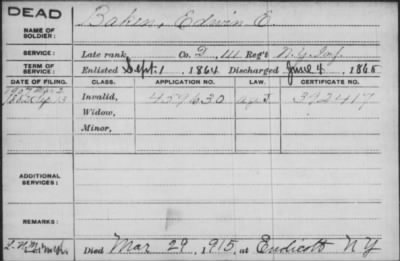 DEAD
NAME OF SOLDIER: Baker, Edwin E.
SERVICE: Late rank, Co. D, 111 Reg't N.Y. Inf.
TERM OF SERVICE: Enlisted Sept. 1, 1864 Discharged June 4, 1865
DATE OF FILING. CLASS. APPLICATION NO. LAW. CERTIFICATE NO.
Invalid, 459630 392417
Widow,
Minor,
ADDITIONAL SERVICES:
REMARKS:
Died Mar 29, 1915, at Endicott NY